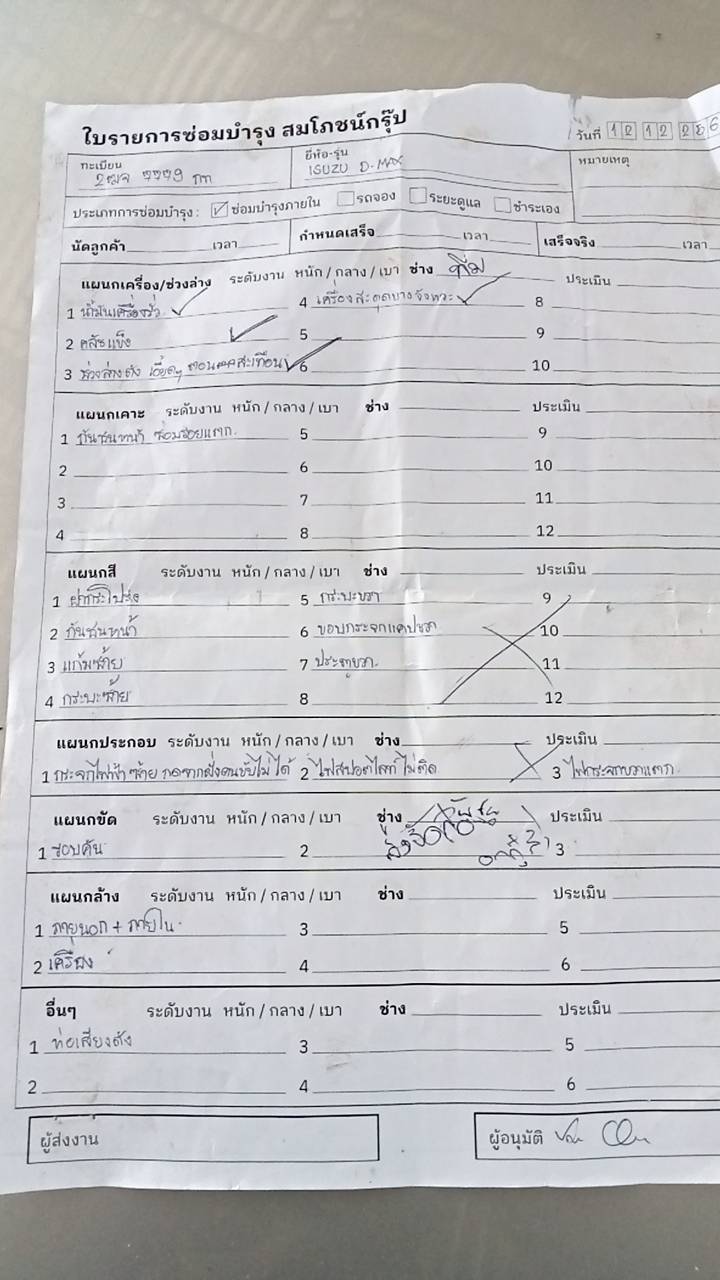 ใบรายการซ่อมบำรุง สมโภชน์กรุ๊ป
วันที่ 12 12 256
ทะเบียน ยี่ห้อ-รุ่น หมายเหตุ
2ฒฉ 7779 กท ISUZU D-MAX
ประเภทการซ่อมบำรุง : ซ่อมบำรุงภายใน รถจอง ระยะดูแล ชำระเอง
นัดลูกค้า เวลา กำหนดเสร็จ เวลา เสร็จจริง เวลา
แผนกเครื่อง/ช่วงล่าง ระดับงาน หนัก / กลาง / เบา ช่าง ประเมิน
1 น้ำมันเครื่องรั่ว 4 เครื่องสะดุดบางจังหวะ 8
2 คลัชแข็ง 5 9
3 ช่วงล่างดัง เอี๊ยดๆ ตอนสะเทือน 6 10
แผนกเคาะ ระดับงาน หนัก / กลาง / เบา ช่าง ประเมิน
1 กันชนหน้า ซ่อมรอยแตก 5 9
2 6 10
3 7 11
4 8 12
แผนกสี ระดับงาน หนัก / กลาง / เบา ช่าง ประเมิน
1 ฝากระโปรง 5 กระบะขวา 9
2 กันชนหน้า 6 ขอบกระจกแคปขวา 10
3 แก้มซ้าย 7 ประตูขวา 11
4 กระบะซ้าย 8 12
แผนกประกอบ ระดับงาน หนัก / กลาง / เบา ช่าง ประเมิน
1 กระจกไฟฟ้าซ้าย กดจากฝั่งคนขับไม่ได้ 2 ไฟสปอตไลท์ไม่ติด 3 ไฟกระจกขวาแตก
แผนกขัด ระดับงาน หนัก / กลาง / เบา ช่าง ประเมิน
1 รอบคัน 2 3
แผนกล้าง ระดับงาน หนัก / กลาง / เบา ช่าง ประเมิน
1 ภายนอก + ภายใน 3 5
2 เครื่อง 4 6
อื่นๆ ระดับงาน หนัก / กลาง / เบา ช่าง ประเมิน
1 ท่อเสียงดัง 3 5
2 4 6
ผู้ส่งงาน ผู้อนุมัติ